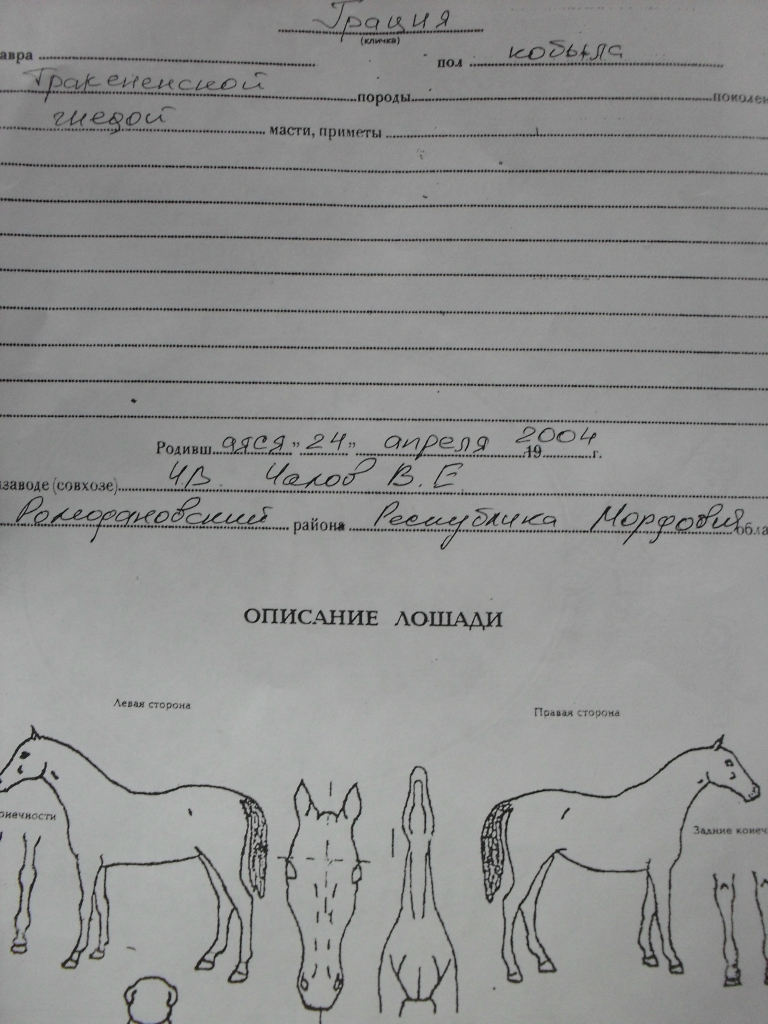 Грация
(кличка)
авра пол кобыла
Тракененской породы поколен
гнедой масти, приметы
Родивш аяся „ 24 „ апреля 19 2004 г.
заводе (совхозе) ЧВ Чалов В. Е
Ромодановский района Республика Мордовия обла
ОПИСАНИЕ ЛОШАДИ
Левая сторона Правая сторона
онечности Задние конеч